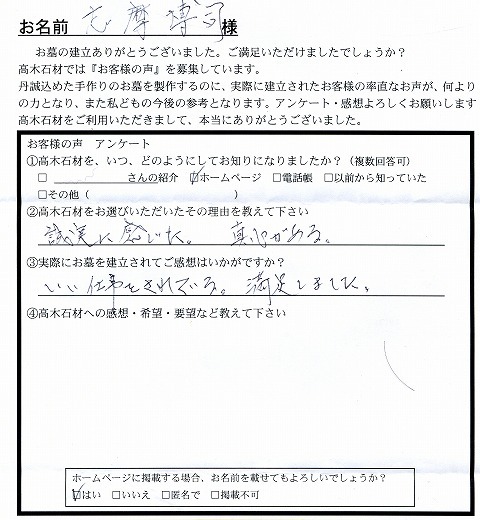 お名前 志摩 博司 様
お墓の建立ありがとうございました。ご満足いただけましたでしょうか？
高木石材では『お客様の声』を募集しています。
丹誠込めた手作りのお墓を製作するのに、実際に建立されたお客様の率直なお声が、何より
の力となり、また私どもの今後の参考となります。アンケート・感想よろしくお願いします
高木石材をご利用いただきまして、本当にありがとうございました。
お客様の声　アンケート
①高木石材を、いつ、どのようにしてお知りになりましたか？（複数回答可）
□ ＿＿＿＿＿＿さんの紹介 ☑ホームページ □電話帳 □以前から知っていた
□その他（　　　　　　　　　　　　　　）
②高木石材をお選びいただいたその理由を教えて下さい
誠実に感じた。　真心がある。
③実際にお墓を建立されてご感想はいかがですか？
いい仕事をされている。満足しました。
④高木石材への感想・希望・要望など教えて下さい
ホームページに掲載する場合、お名前を載せてもよろしいでしょうか？
☑はい □いいえ □匿名で □掲載不可